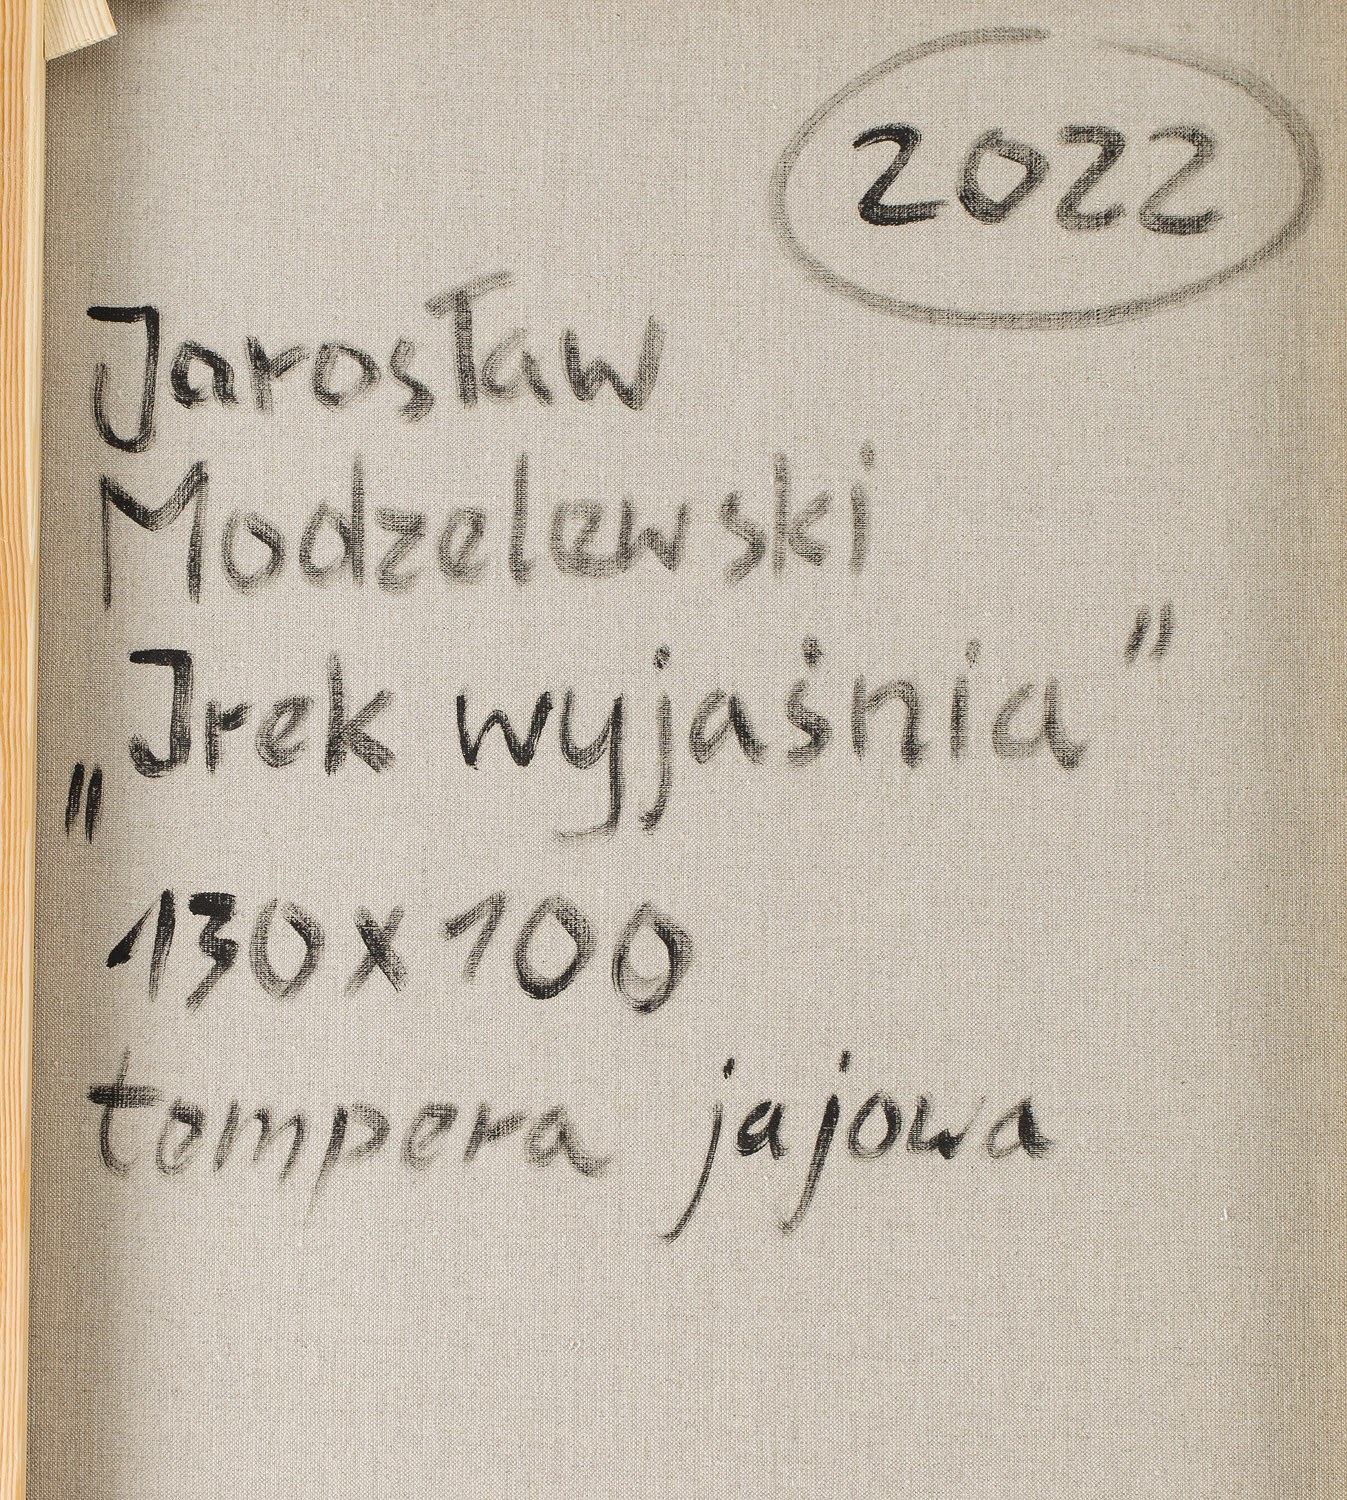 2022
Jarosław
Modzelewski
„Jrek wyjaśnia"
130x100
tempera jajowa